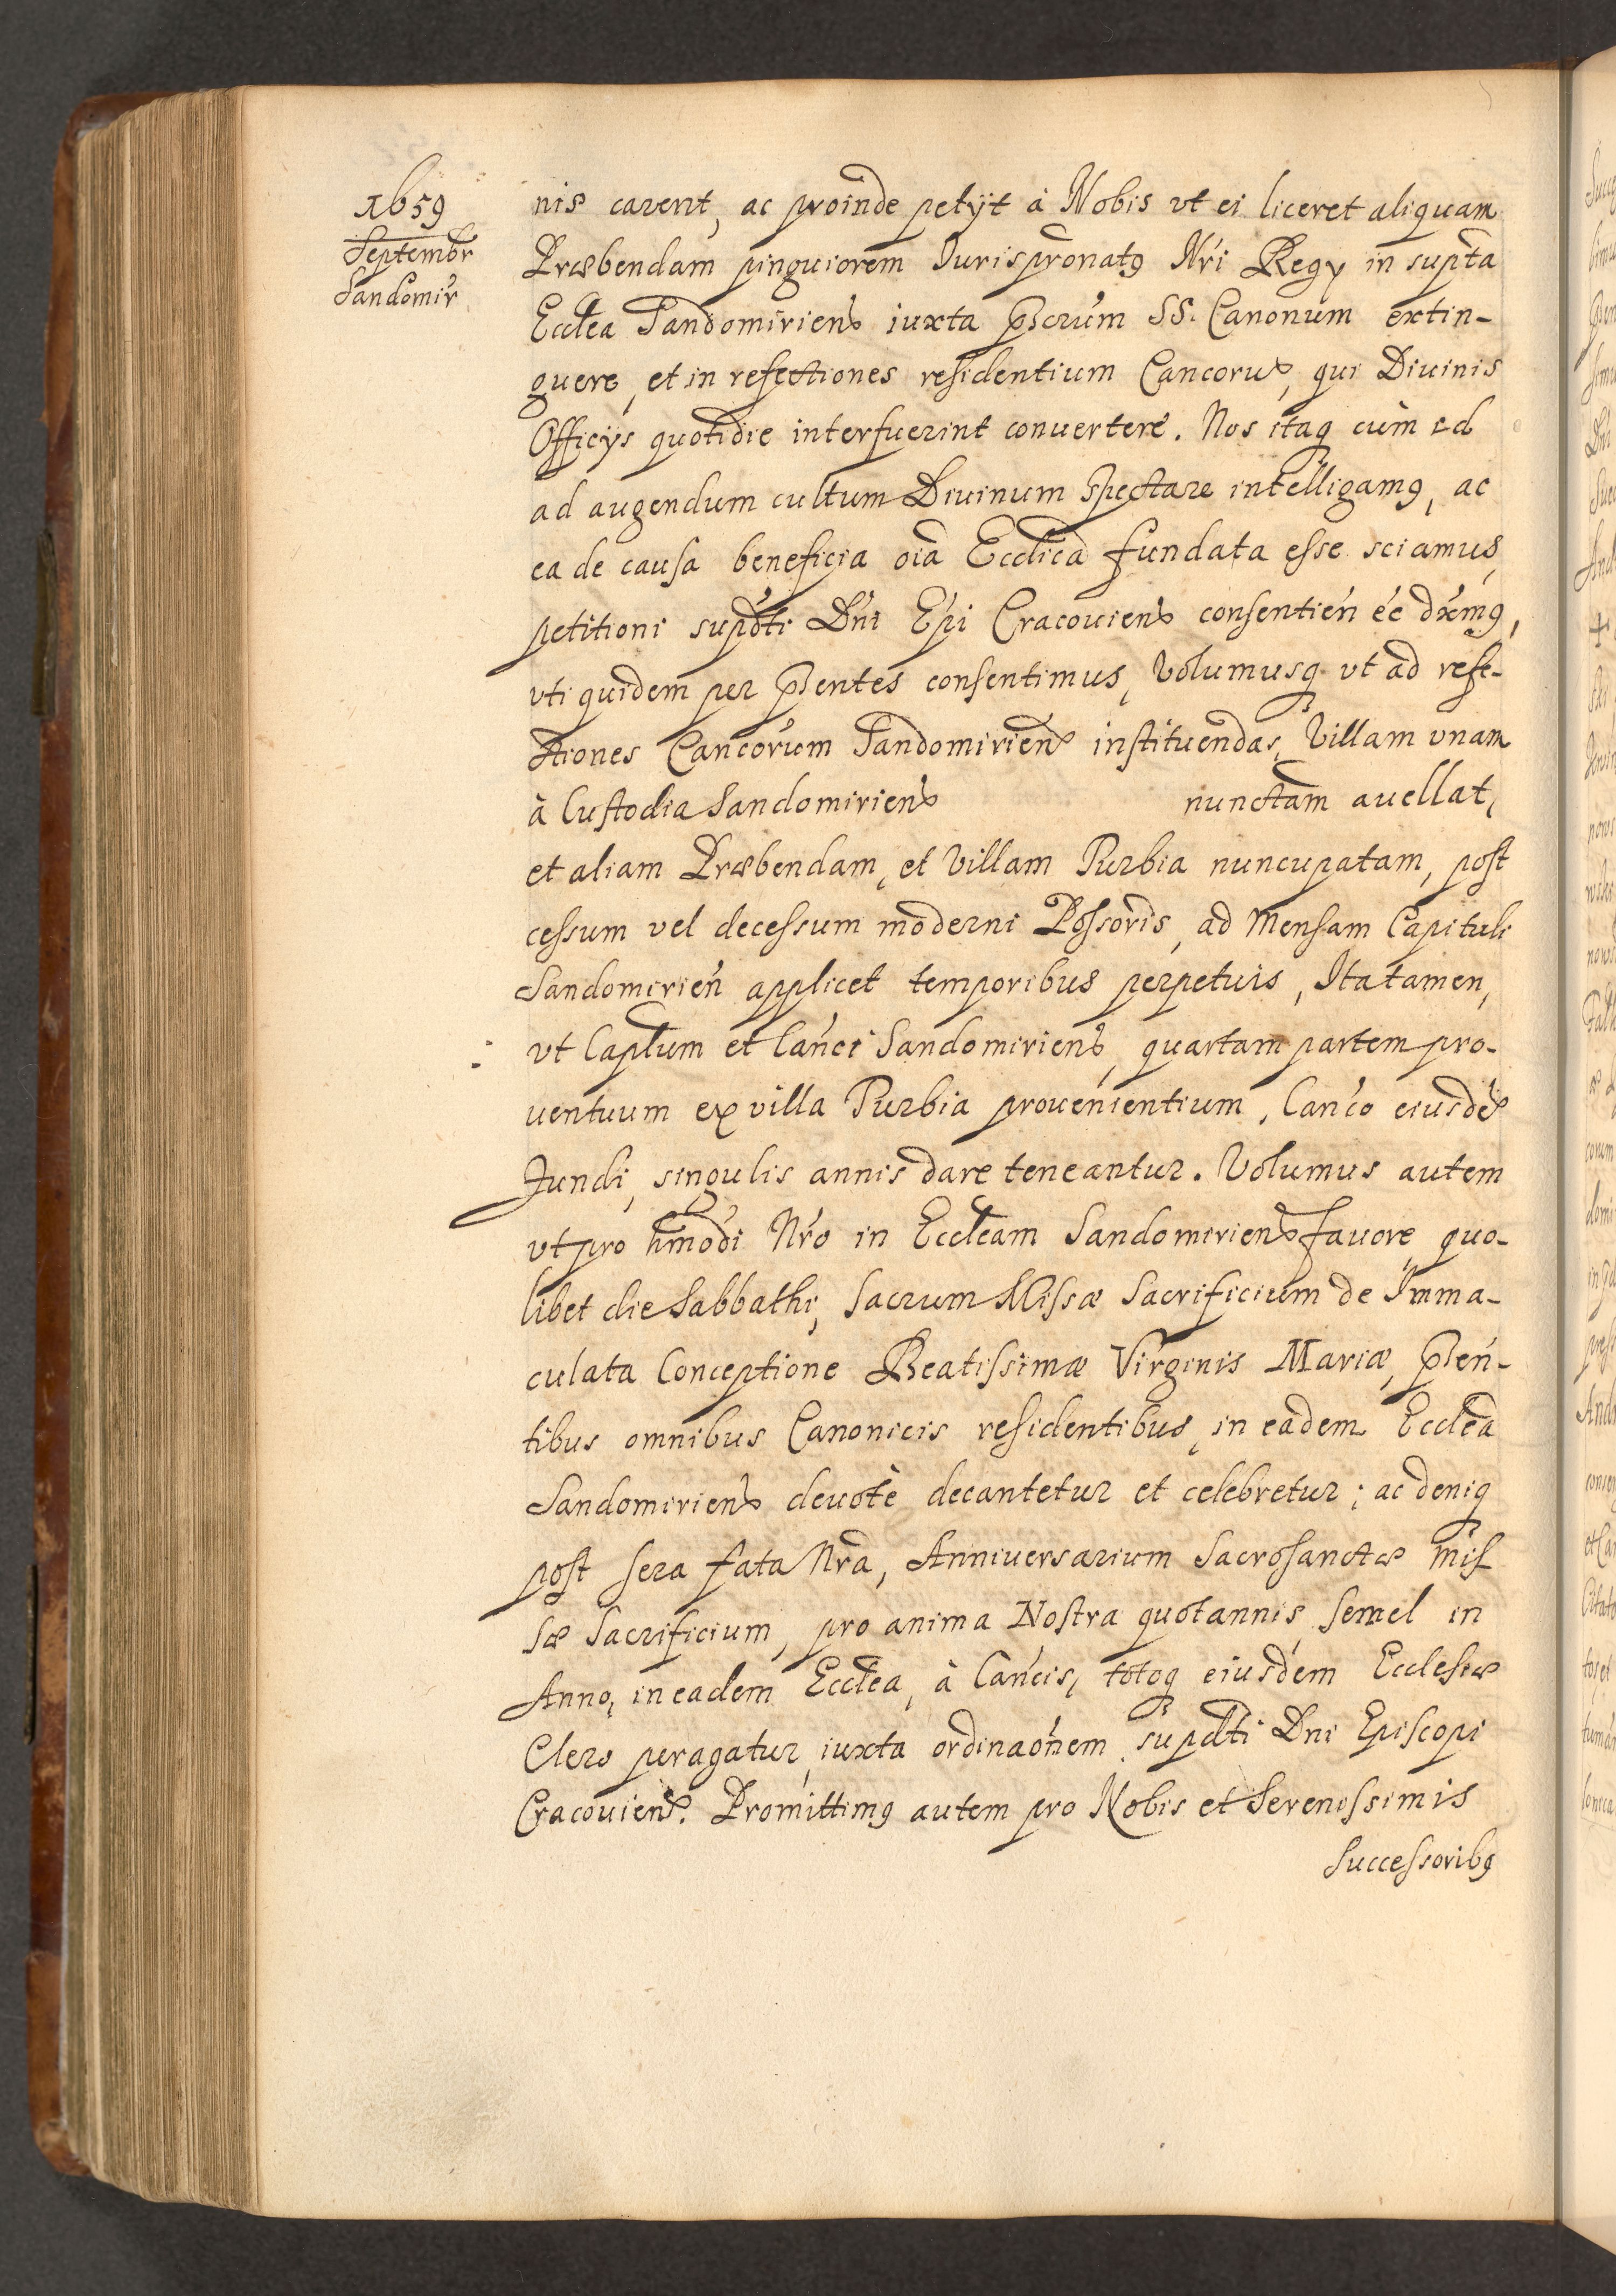 1659
Septembr
Sandomir
nis carent, ac proinde petijt à Nobis vt ei liceret aliquam
Præbendam pinguiorem Jurispronatq Nri Regy in supta
Ecclea Sandomiriens iuxta pscrum SS. Canonum extin-
guere, et in refectiones residentium Cancorum, qui Diuinis
Officijs quotidie interfuerint conuertere. Nos itaq cùm id
ad augendum cultum Diuinum spectare intelligamq, ac
ea de causa beneficia oia Ecclica fundata esse sciamus,
petitioni supdti Dni Epi Cracouiens consentien ee dxmq,
vti quidem per pntes consentimus, Volumusq vt ad refe-
ctiones Cancorum Sandomiriens instituendas, Villam vnam
à Custodia Sandomiriens nunctam auellat,
et aliam Præbendam, et Villam Turbia nuncupatam, post
cessum vel decessum moderni Possoris, ad Mensam Capituli
Sandomirien applicet temporibus perpetuis, Ita tamen,
vt Caplum et Canci Sandomiriens, quartam partem pro-
uentuum ex villa Turbia prouenientium, Canco eiusdem
fundi, singulis annis dare teneantur. Volumus autem
vt pro hmodi Nro in Eccleam Sandomiriens fauore, quo-
libet die Sabbathi, Sacrum Missæ Sacrificium de Imma-
culata Conceptione Beatissimæ Virginis Mariæ, psen-
tibus omnibus Canonicis residentibus, in eadem Ecclea
Sandomiriens deuotè decantetur et celebretur; ac deniq
post sera fata Nra, Anniuersarium Sacrosanctæ mis
sæ Sacrificium, pro anima Nostra quotannis semel in
Anno, in eadem Ecclea, à Cancis, totoq eiusdem Ecclesiæ
Clero peragatur, iuxta ordinaonem supdti Dni Episcopi
Cracouiens. Promittimq autem pro Nobis et Serenissimis
Successoribq